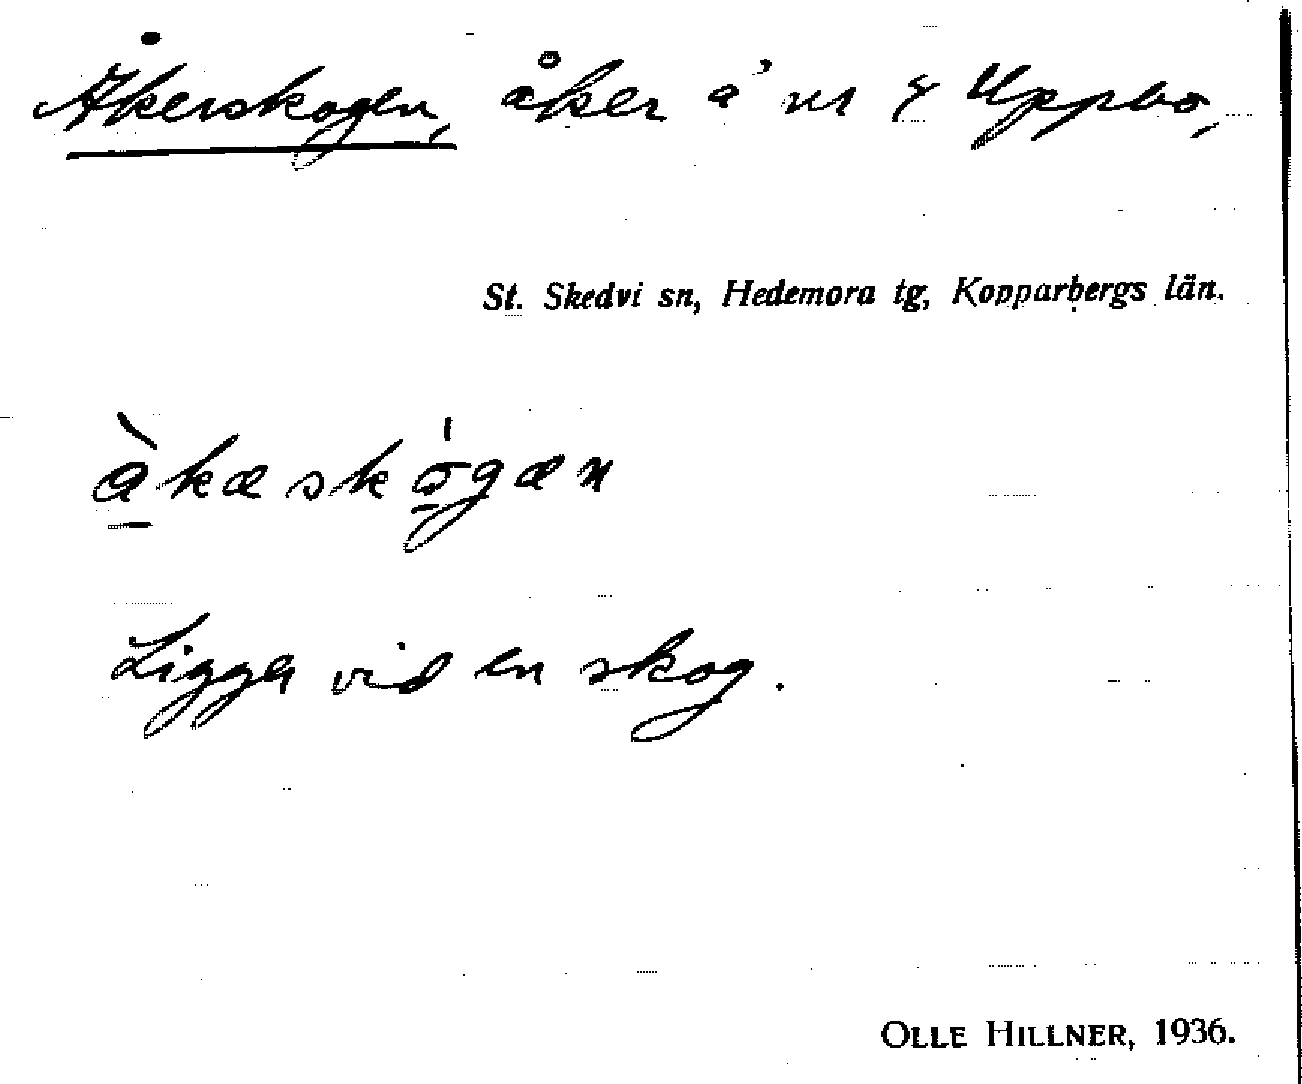 Åkerskogen, åker å nr 8 Uppbo,
St. Skedvi sn, Hedemora tg, Kopparbergs län.
àkæskógæn
Ligger vid en skog.
OLLE HILLNER, 1936.